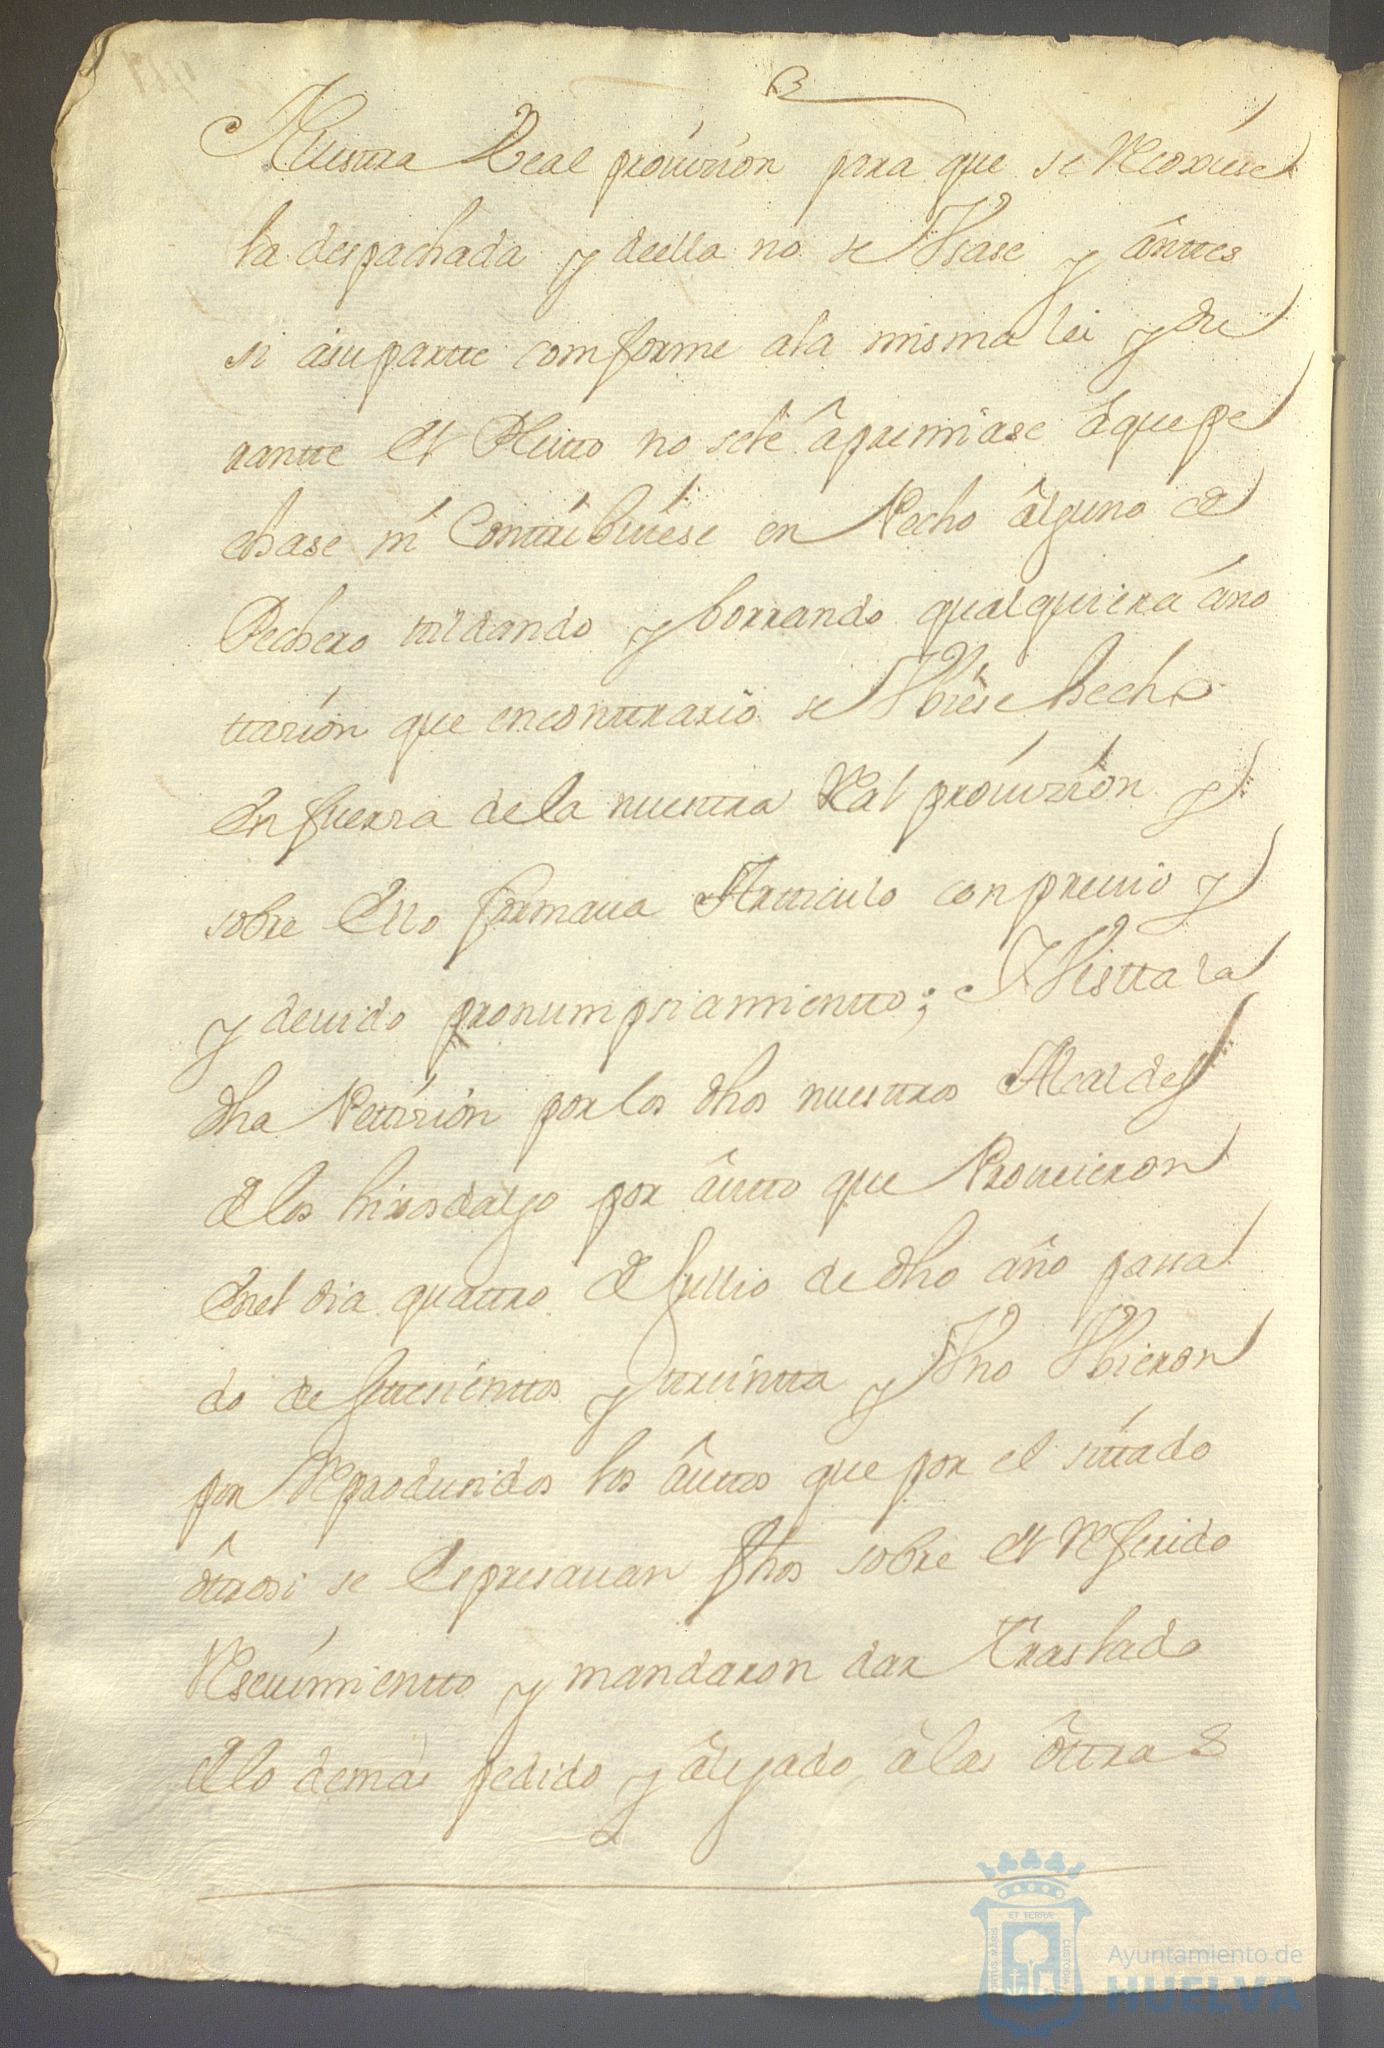 Nuestra Real prouizíon para que se Recoxíese
la despachada y deella no se Vsase y ânttes
si asuparttte comforme ala misma lei y du
rantte el Pleitto no sele âpremiase âque pe
chase ní Conttribuíese en Pecho âlguno de
Pechero tildando y borrando qualquiera âno
ttazíon que encontrario se Vbiese hecho
En fuerza de la nuestra Real prouizíon y
sobre Ello formaua Artticulo con preuio y
y deuido pronumpsiamientto; Y Vistta la
dha Pettizíon por los dhos nuestros Alcaldes
de los hixosdalgo por âutto que Proueieron
En el dia quattro de Jullio de dho año passa
do de settesienttos y treintta y Vno Vbieron
por Reprodusidos los âuttos que por el sittado
ôttrosi se Espresauan fhos sobre el Referido
Reseuimientto y mandaron dar Traslado
de lo demás pedido y âlegado â las ôttras
Ayuntamiento de
HUELVA